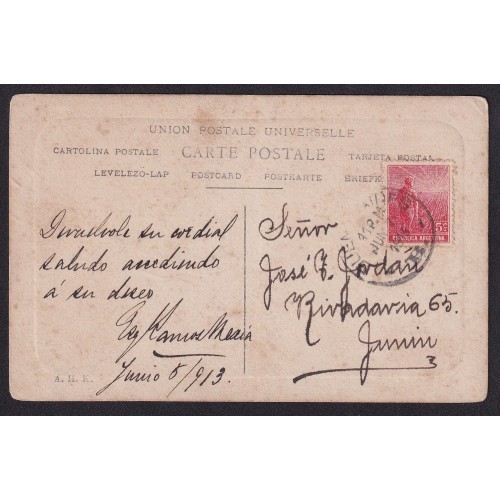 UNION POSTALE UNIVERSELLE
CARTOLINA POSTALE CARTE POSTALE TARJETA POSTAL
LEVELEZO-LAP POSTCARD POSTKARTE BRIEFK
Devuelvole su cordial
saludo accediendo
á su deseo
Ramos Mexia
Junio 8/913.
Señor
José F. Jordan
Rivadavia 65.
Junin
5c
REPUBLICA ARGENTINA
JUN
A. H. K.